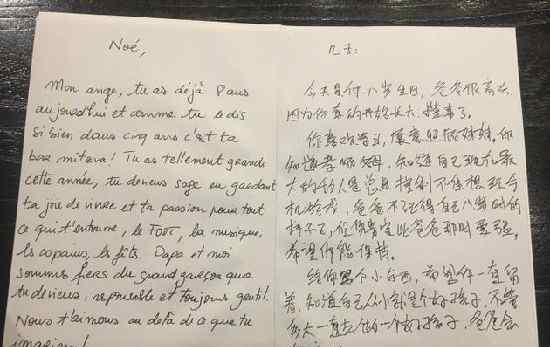 Noé,
Mon ange, tu as déjà 8 ans
aujourd'hui et comme tu le dis
si bien, dans cinq ans c'est ta
bar mitsva! Tu as tellement grandi
cette année, tu deviens sage en gardant
ta joie de vivre et ta passion pour tout
ce qui t'entoure, le Foot, la musique,
les copains, les fêtes. Papa et moi
sommes fiers du grand garçon que
tu deviens, responsable et toujours gentil.
Nous t'aimons au delà de ce que tu
imagine
儿子:
今天是你八岁生日,爸爸很高兴
因为你真的开始长大,懂事了。
你喜欢
知道孝顺父母,知道自己
爸爸不记得自己八岁时的
样子了,但你肯定比爸爸那时更强,
希望你能保持。
给你写个小东西,希望你一直留
着,知道自己从小就是个好孩子,不管
多大一直都是一个好孩子,爸爸会